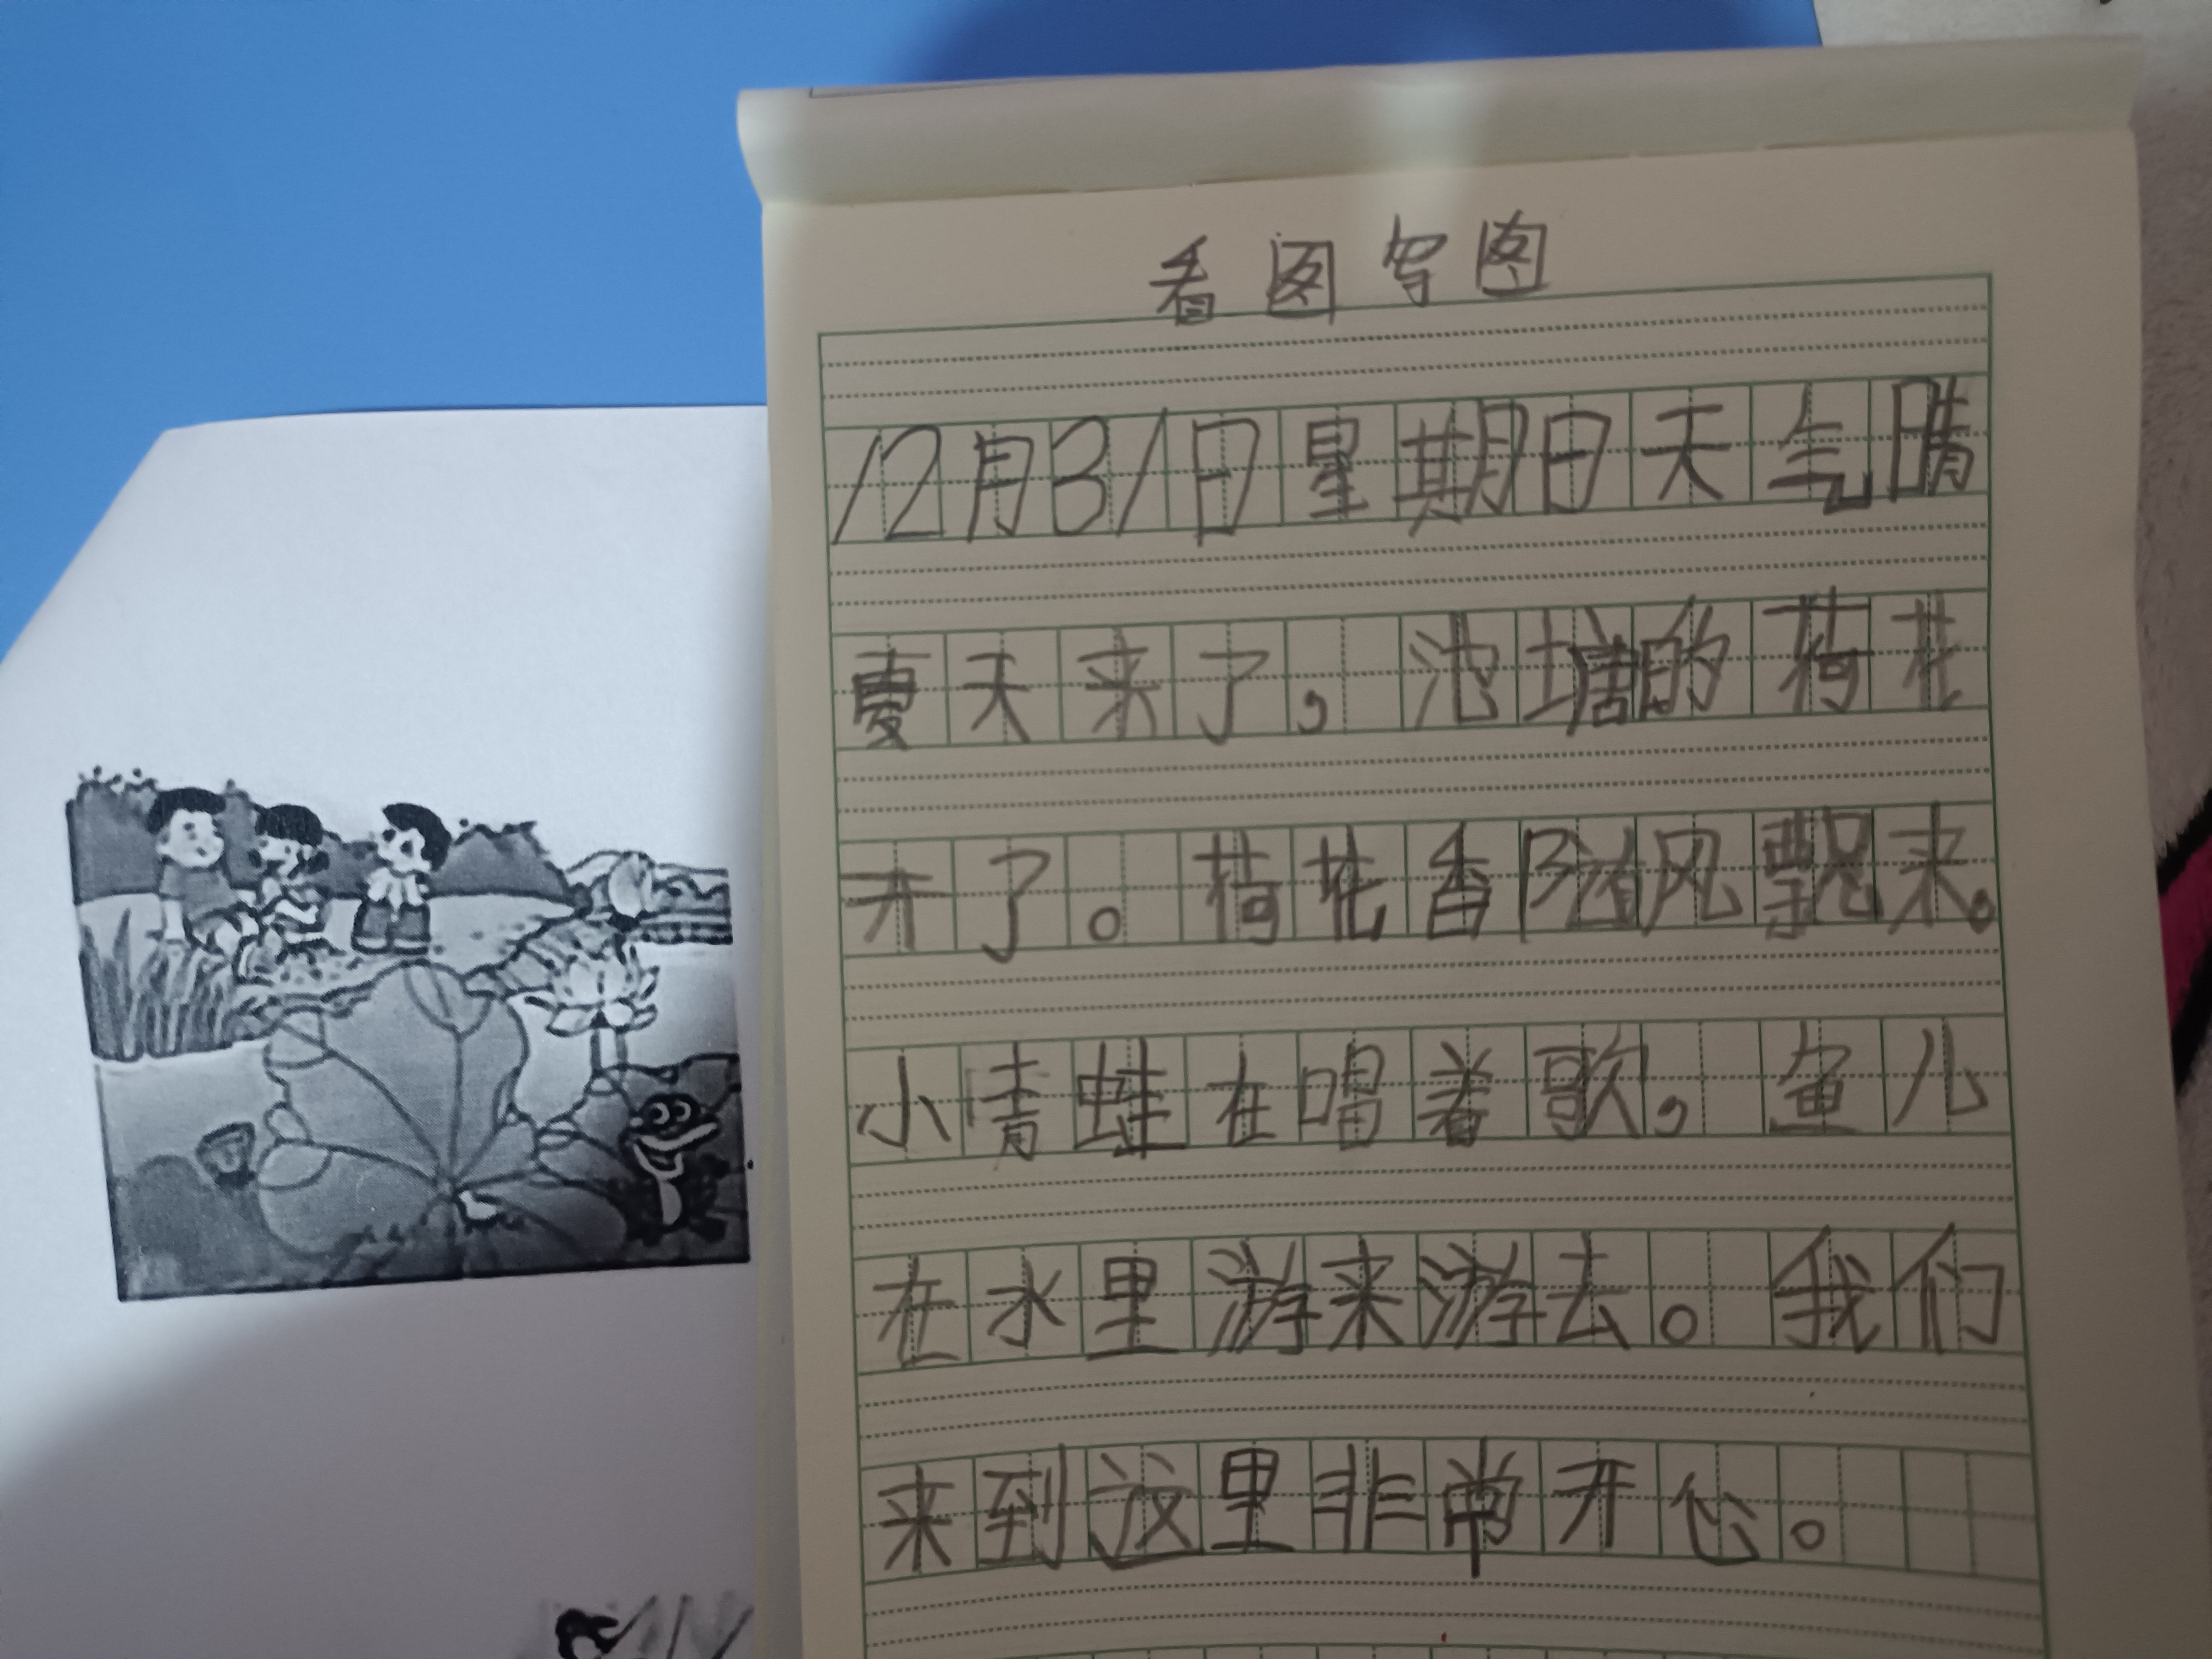 看图写图
12月31日星期日天气晴
夏天来了，池塘的荷花
开了。荷花香随风飘来。
小青蛙在唱着歌，鱼儿
在水里游来游去。我们
来到这里非常开心。